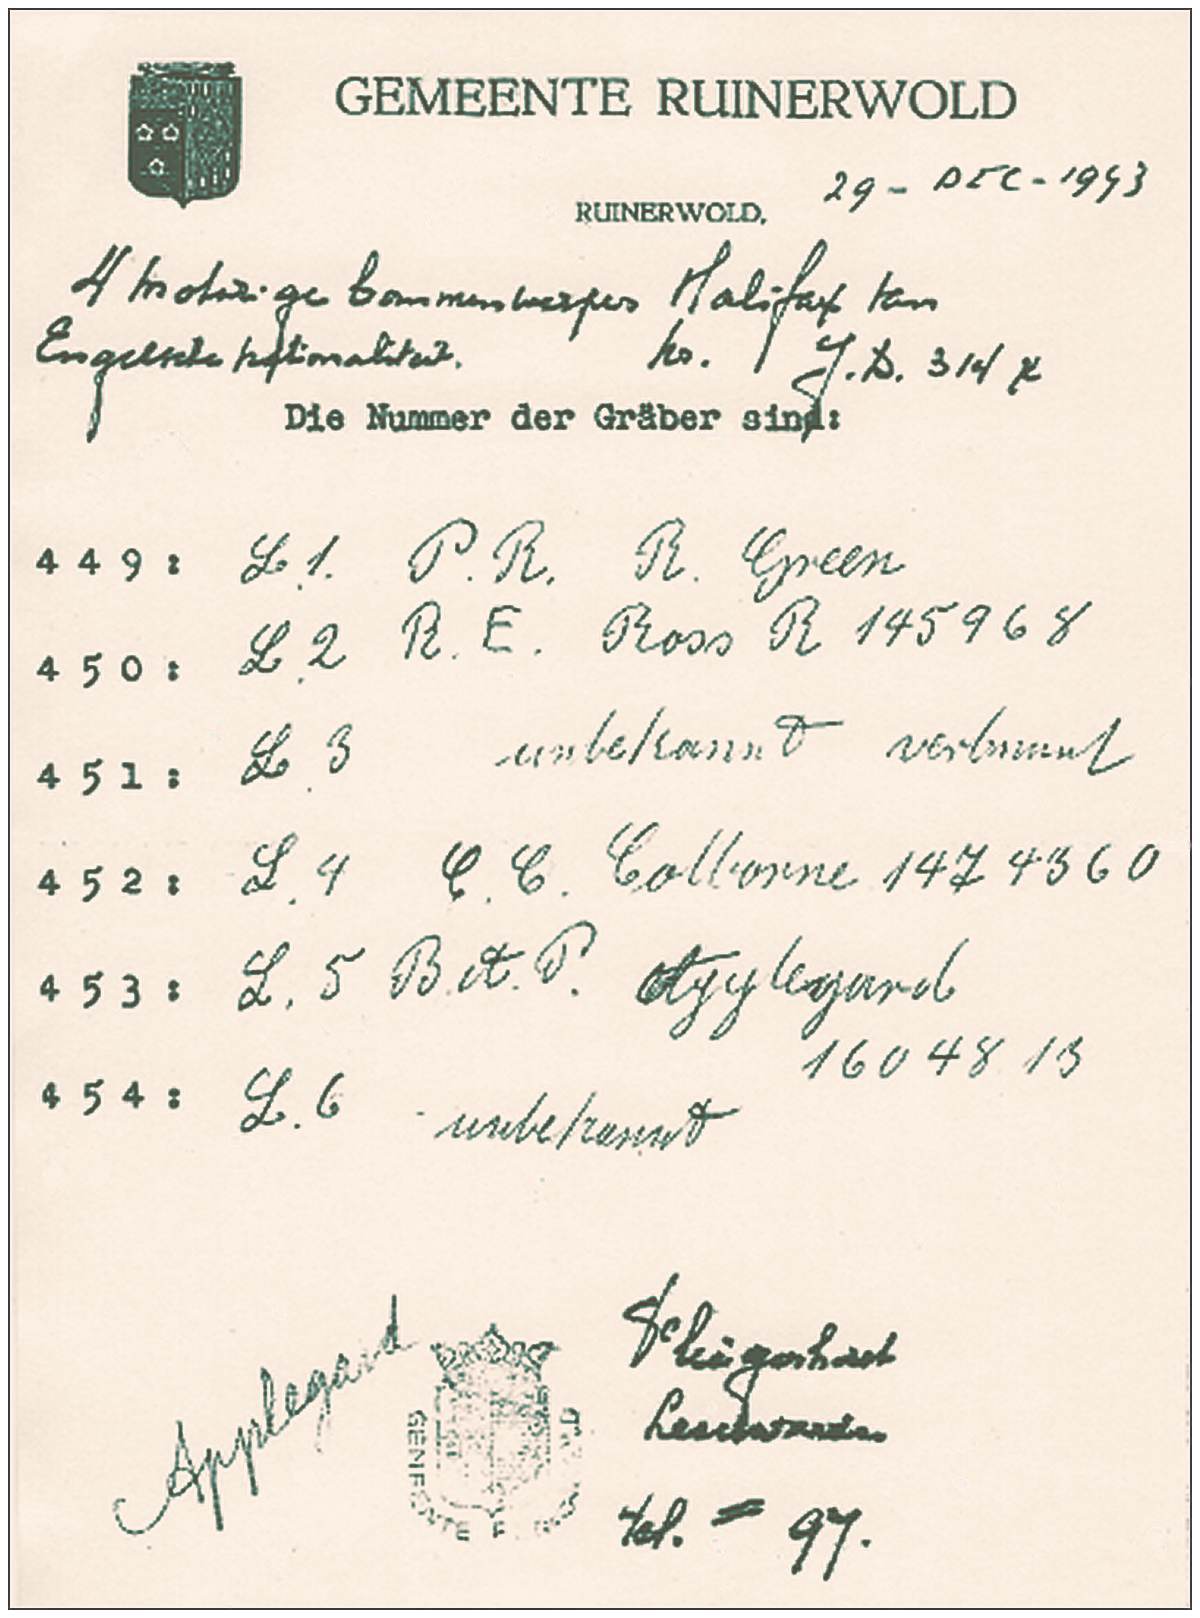 GEMEENTE RUINERWOLD
29 - DEC - 1943
RUINERWOLD,
4 motorige bommenwerper Halifax van
Engelsche nationaliteit. no. J.D. 314 X
Die Nummer der Gräber sind:
449: L.1. P.R. R. Green
450: L.2 R.E. Ross R 145968
451: L.3 unbekannt verbrannt
452: L.4 C.C. Colborne 1474360
453: L.5 B.A.P. Applegard
1604813
454: L.6 - unbekannt
Applegard
GEMEENTE
Vliegerhorst
Leeuwarden
tel. = 97.